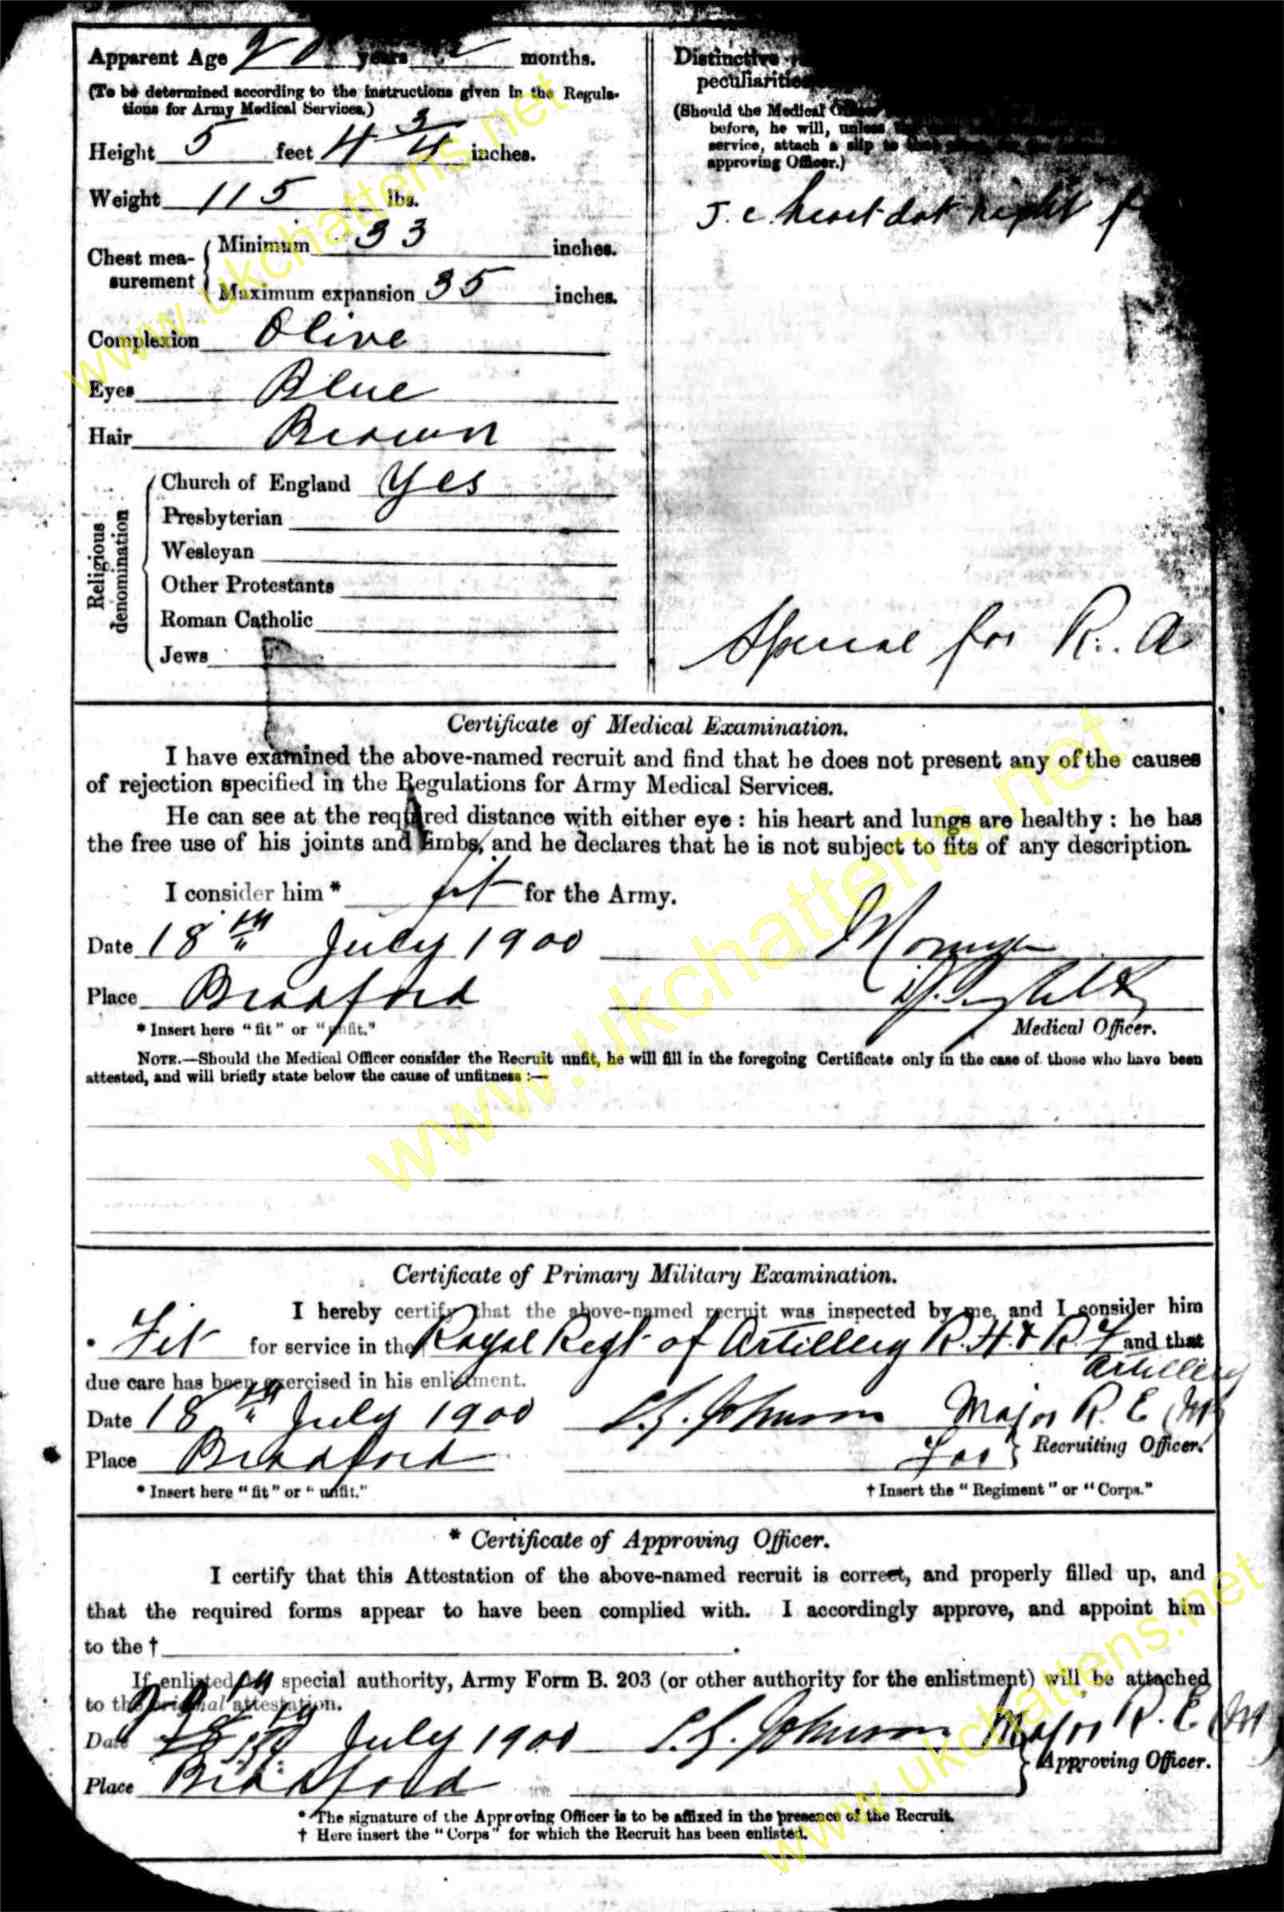 Apparent Age 20 years 2 months.
(To be determined according to the instructions given in the Regula-
tions for Army Medical Services.)
Height 5 feet 4 3/4 inches.
Weight 115 lbs.
Chest mea-
surement
Minimum 33 inches.
Maximum expansion 35 inches.
Complexion Olive
Eyes Blue
Hair Brown
Religious
denomination
Church of England Yes
Presbyterian
Wesleyan
Other Protestants
Roman Catholic
Jews
Distinctive
peculiarities
(Should the Medical
before, he will, unless
service, attach a slip to
approving Officer.)
heart dot right
Special for R. A
Certificate of Medical Examination.
I have examined the above-named recruit and find that he does not present any of the causes
of rejection specified in the Regulations for Army Medical Services.
He can see at the required distance with either eye : his heart and lungs are healthy : he has
the free use of his joints and limbs, and he declares that he is not subject to fits of any description.
I consider him * fit for the Army.
Date 18th July 1900
Place Bradford
Medical Officer.
* Insert here "fit" or "unfit."
NOTE.—Should the Medical Officer consider the Recruit unfit, he will fill in the foregoing Certificate only in the case of those who have been
attested, and will briefly state below the cause of unfitness :—
Certificate of Primary Military Examination.
I hereby certify that the above-named recruit was inspected by me, and I consider him
* Fit for service in the Royal Regt of Artillery R.H & R.F and that
Artillery
due care has been exercised in his enlistment.
Date 18th July 1900 Johnson Major R. E (M)
Place Bradford Recruiting Officer.
* Insert here "fit" or "unfit."
† Insert the "Regiment" or "Corps."
* Certificate of Approving Officer.
I certify that this Attestation of the above-named recruit is correct, and properly filled up, and
that the required forms appear to have been complied with. I accordingly approve, and appoint him
to the †
If enlisted by special authority, Army Form B. 203 (or other authority for the enlistment) will be attached
to the original attestation.
Date July 1900 Johnson Major R. E (M)
Place Bradford Approving Officer.
* The signature of the Approving Officer is to be affixed in the presence of the Recruit.
† Here insert the "Corps" for which the Recruit has been enlisted.
www.ukchattens.net
www.ukchattens.net
www.ukchattens.net